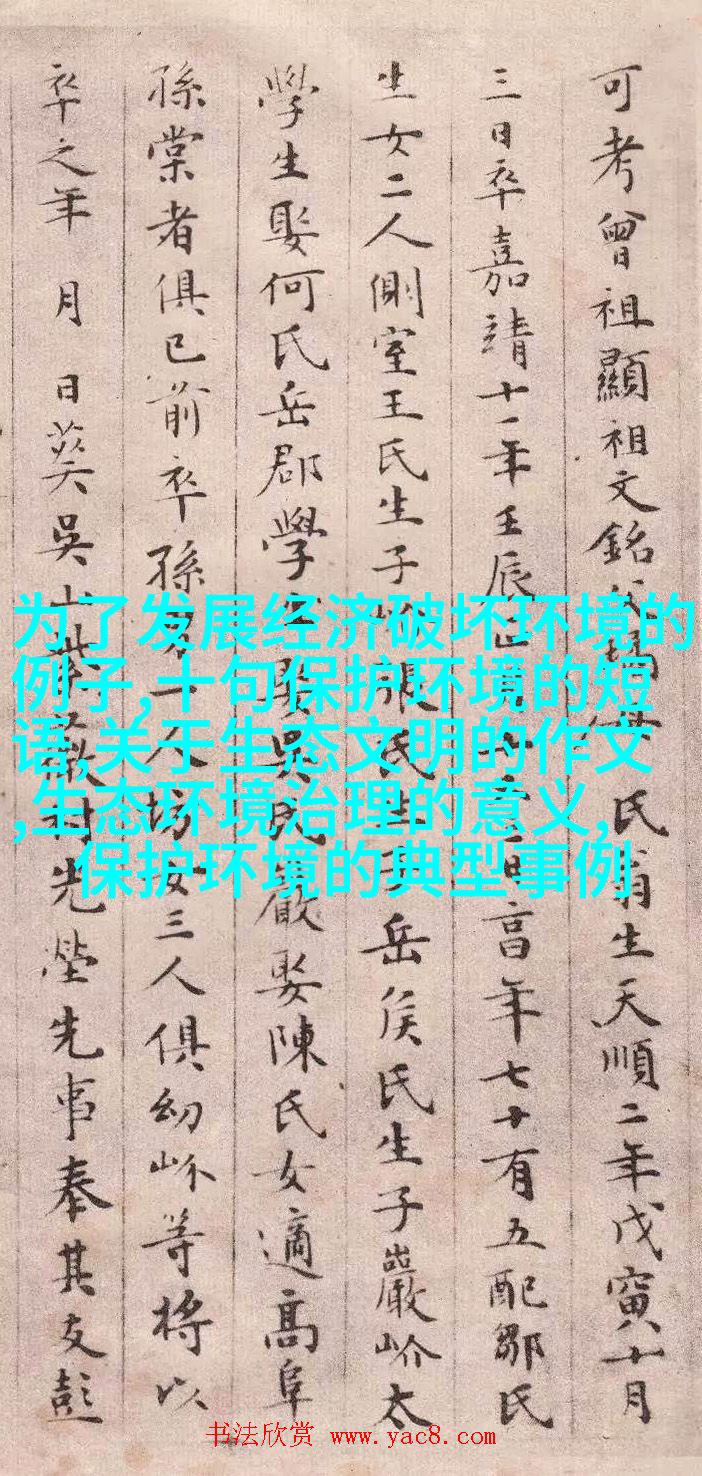 可考曾祖顯祖文銘氏翁生天順二年戊寅十月
三日卒嘉靖十一年壬辰高年七十有五配鄒氏
生女二人側室王氏生子岳侯氏生子巖岕太
學生娶何氏岳郡學巖娶陳氏女適高阜
孫棠者俱已前卒孫人坊女三人俱幼岕等將以
卒之年 月 日葬吳山村先塋先事奉其友彭
为了发展经济破坏环境的
例子,十句保护环境的短
语,关于生态文明的作文
,生态环境治理的意义,
保护环境的典型事例
书法欣赏 www.yac8.com